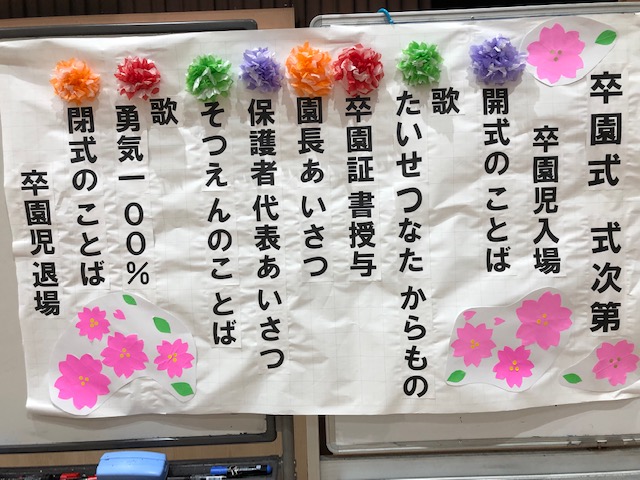 卒園式 式次第
卒園児入場
開式のことば
歌
たいせつなたからもの
卒園証書授与
園長あいさつ
保護者代表あいさつ
そつえんのことば
歌
勇気一〇〇%
閉式のことば
卒園児退場